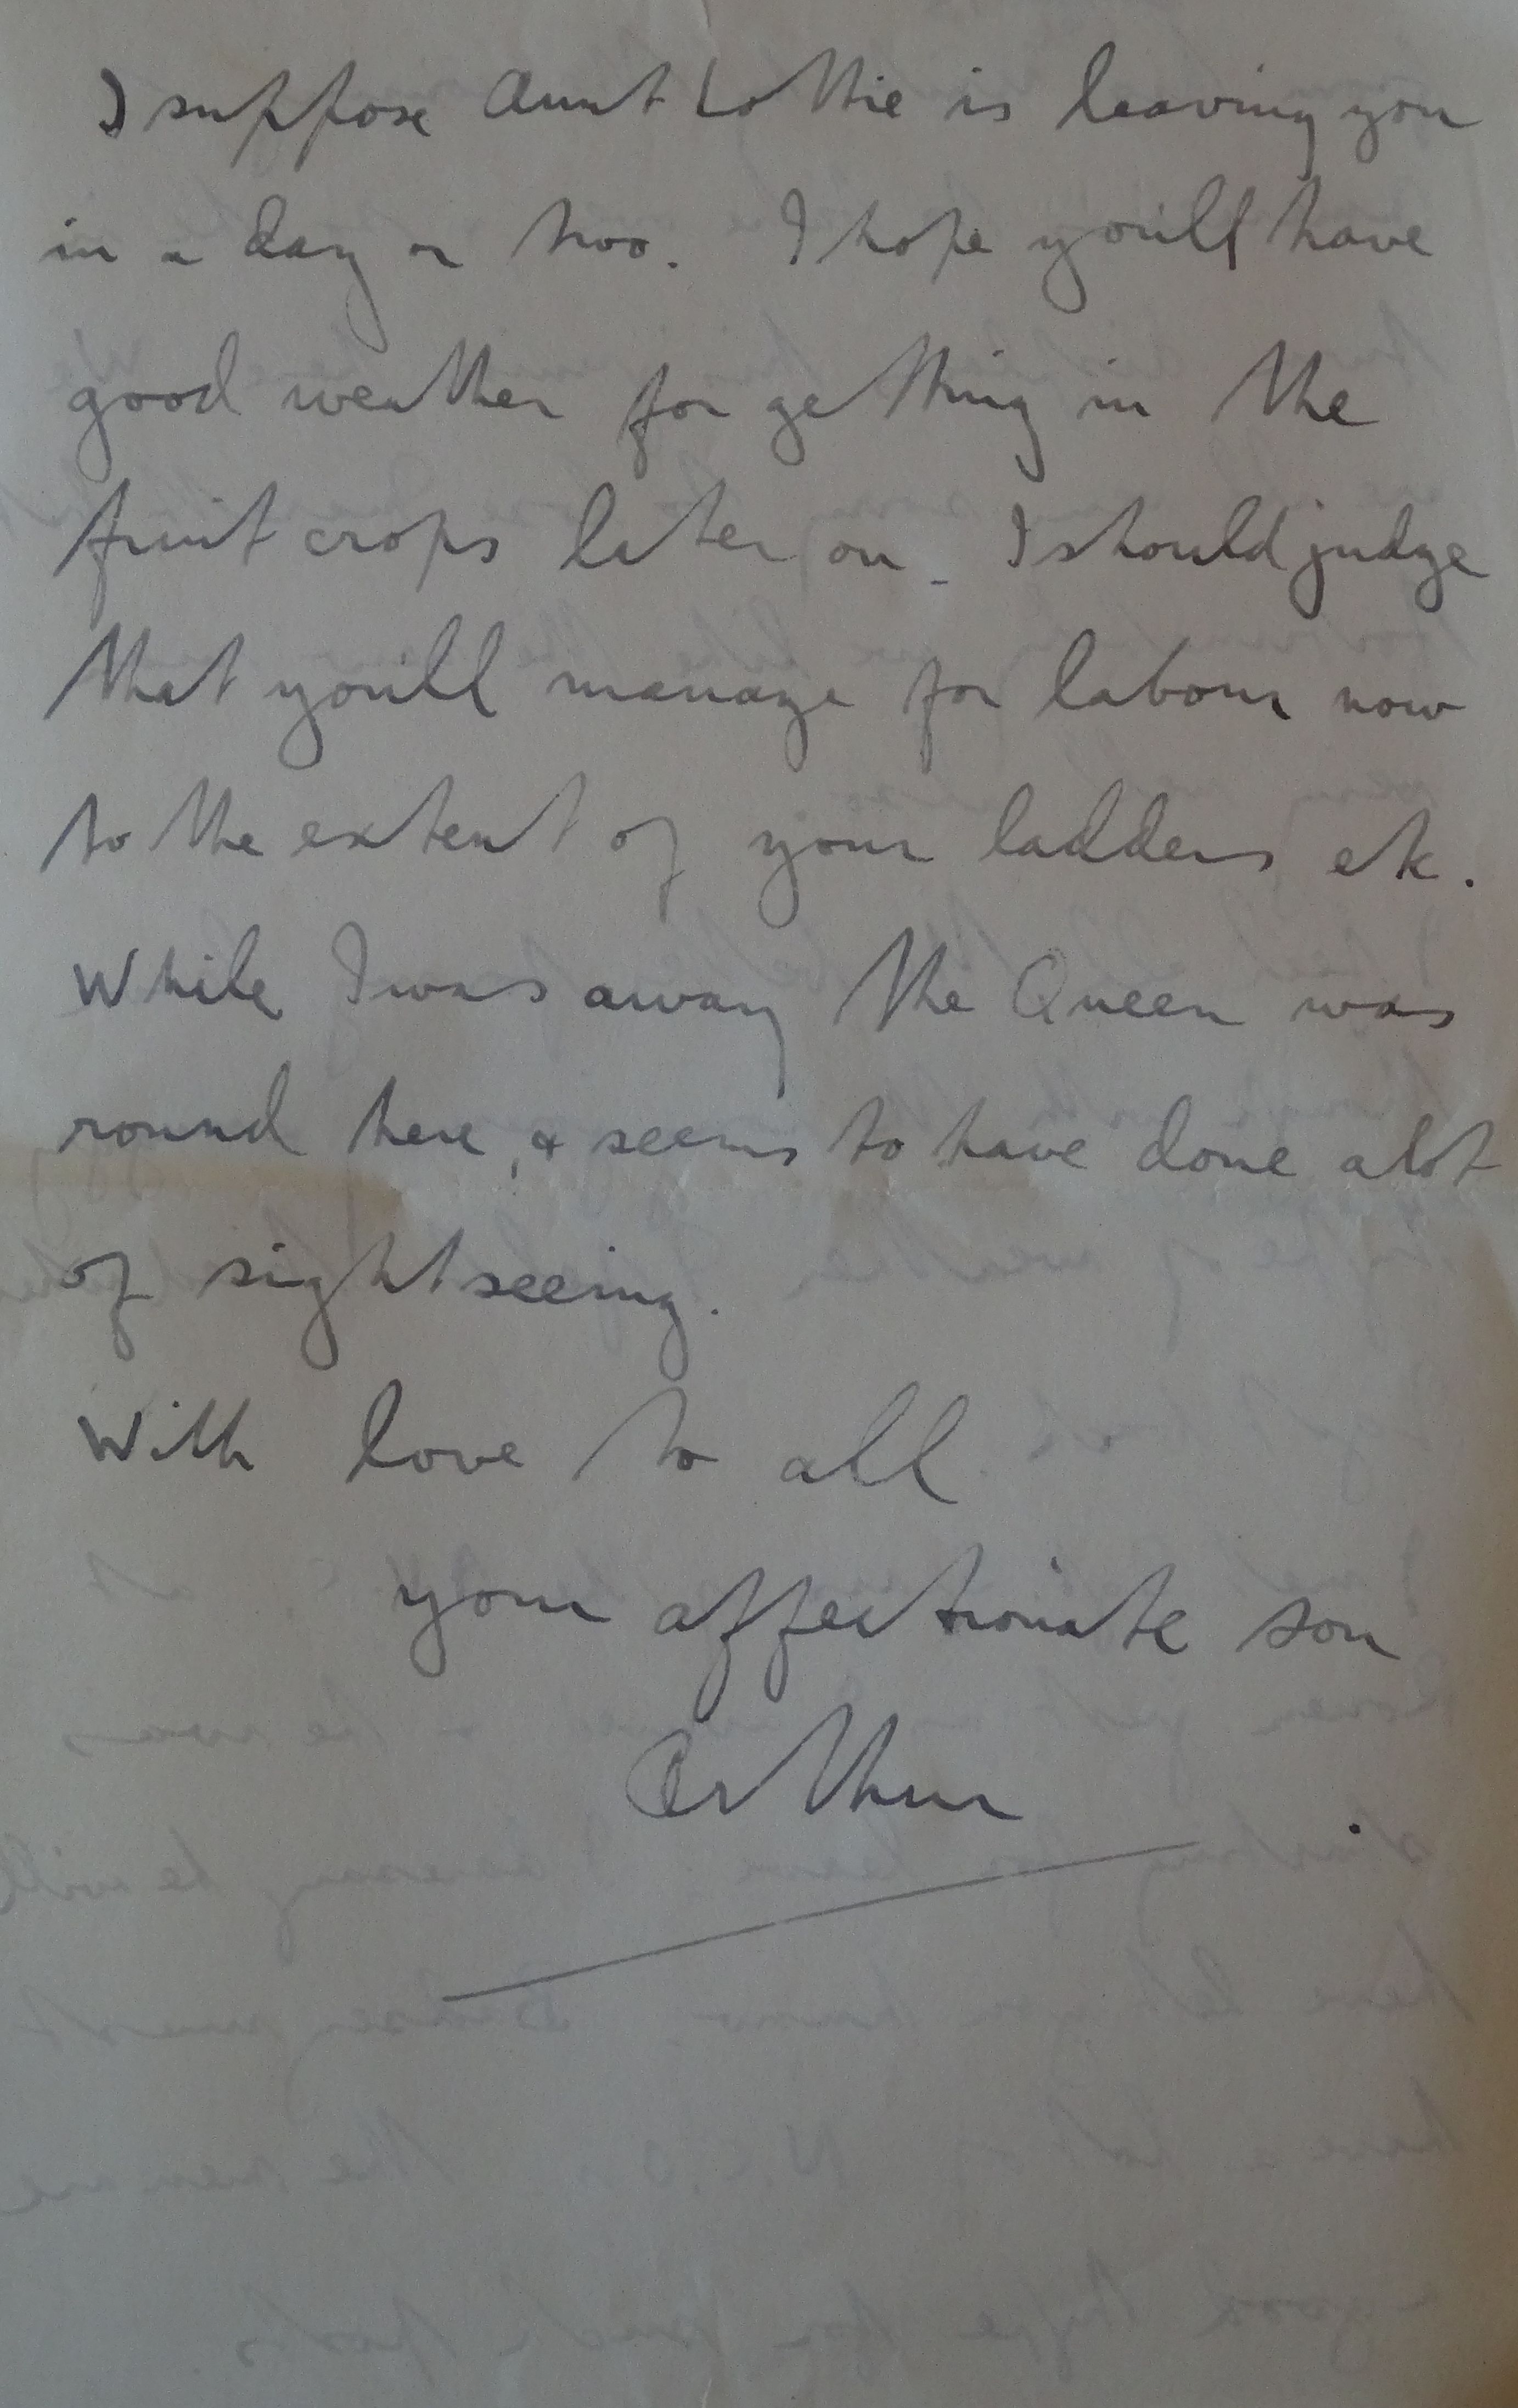 I suppose Aunt Lottie is leaving you
in a day or two. I hope you'll have
good weather for getting in the
fruit crops later on. I should judge
that you'll manage for labour now
to the extent of your ladders etc.
While I was away the Queen was
round here, & seems to have done a lot
of sightseeing.
With love to all.
your affectionate son
Arthur